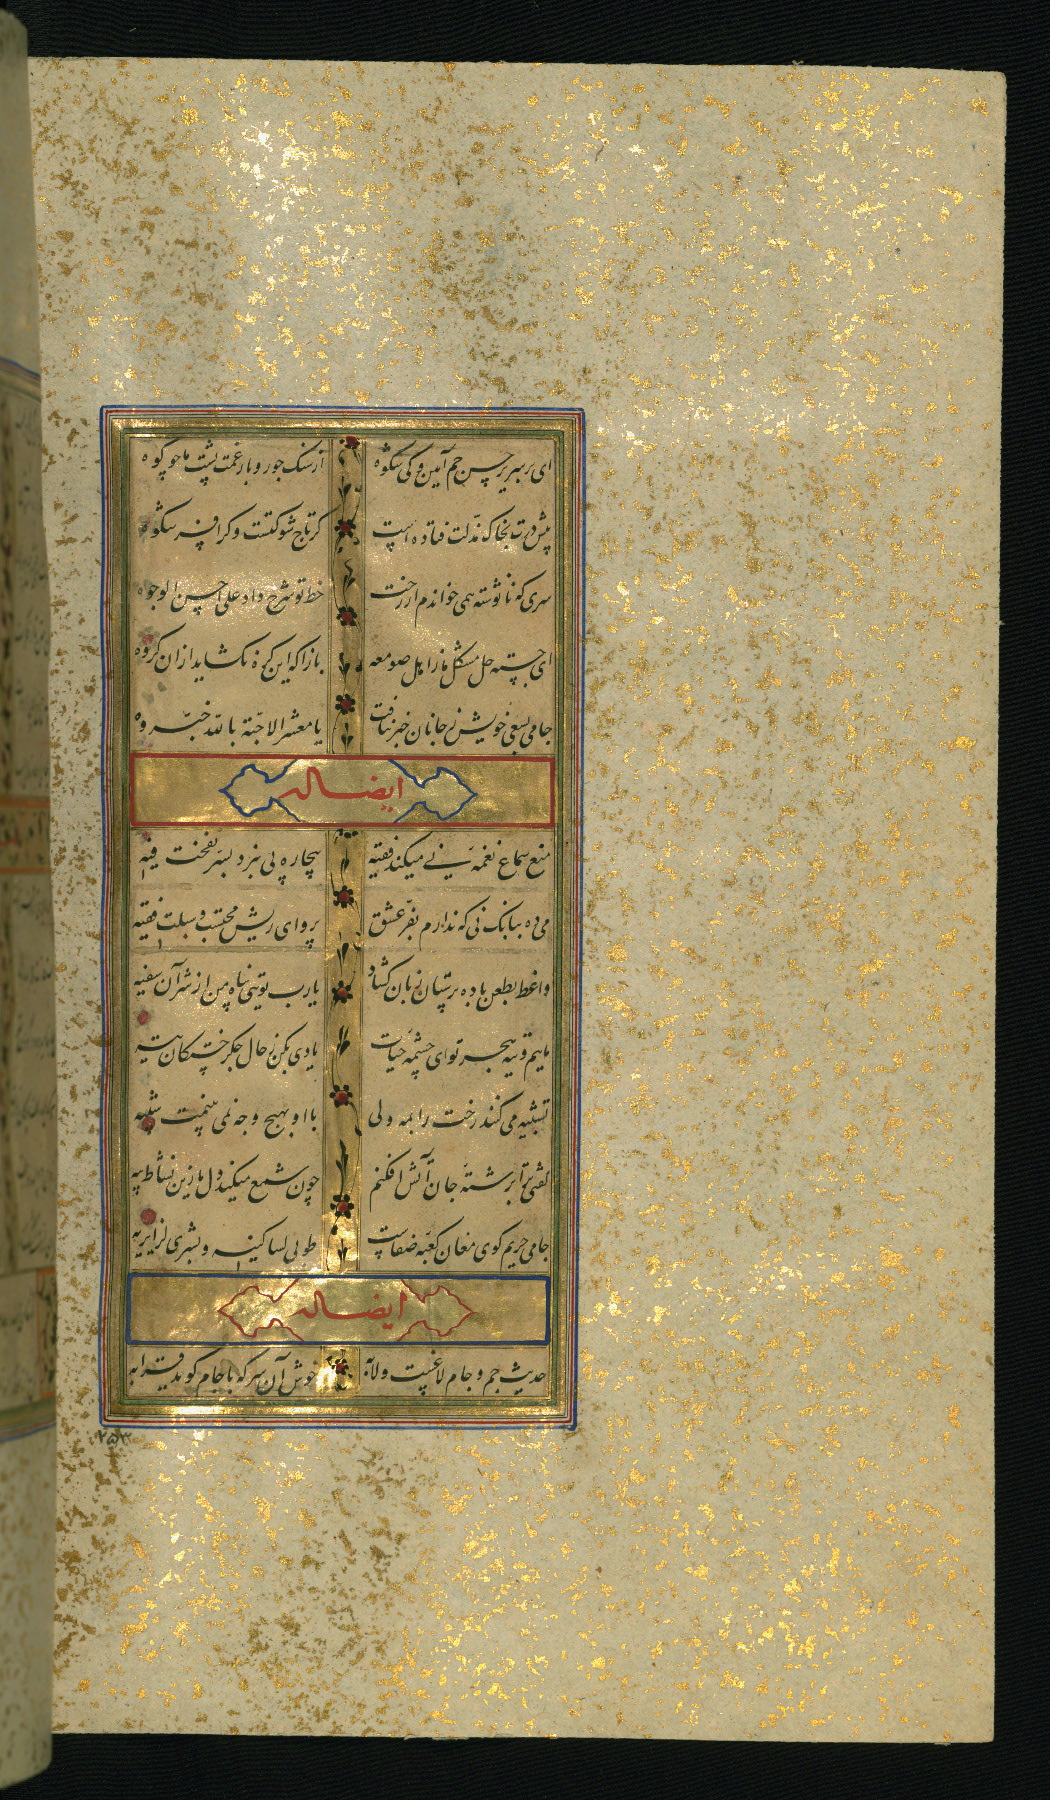 ای بر سریر حسن جم آیین و کی شکوه از سنک جور و بار غمت پشت ما چو کوه
پیش درت بخاک مذلت فتاده است کر تاج شوکتست و کر افسر شکوه
سری که نانوشته همی خواندم از رخت خط تو شرح داد علی احسن الوجوه
ای جسته حل مشکل ما را ز اهل صومعه بازا که این کره نکشاید ازان کروه
جامی بسعی خویش ز جانان خبر نیافت یا معشر الاحبة بالله خبروه
ایضا له
منع سماع نغمه نی میکند فقیه بیچاره پی نبرد بسر نفخت فیه
می ده ببانک نی که ندارم بفر عشق پروای ریش محتسب و سبلت فقیه
واعظ بطعن باده پرستان زبان کشاد یارب تویی پناه من از شر آن سفیه
ماییم و تیه هجر تو ای چشمه حیات یادی بکن ز حال جکر خستکان تیه
تشبیه می کنند رخت را بمه ولی با او بهیچ وجه نمی بینمت شبیه
تو بر رشته جان آتش افکنیم چون شمع میکند دل ما زین نشاط پیه
جامی حریم کوی مغان کعبه صفاست طوبی لساکنیه و بشری لزایریه
ایضا له
حدیث جم و جام لاغیست ولابه خوش آن سر که با جام کوید قرابه